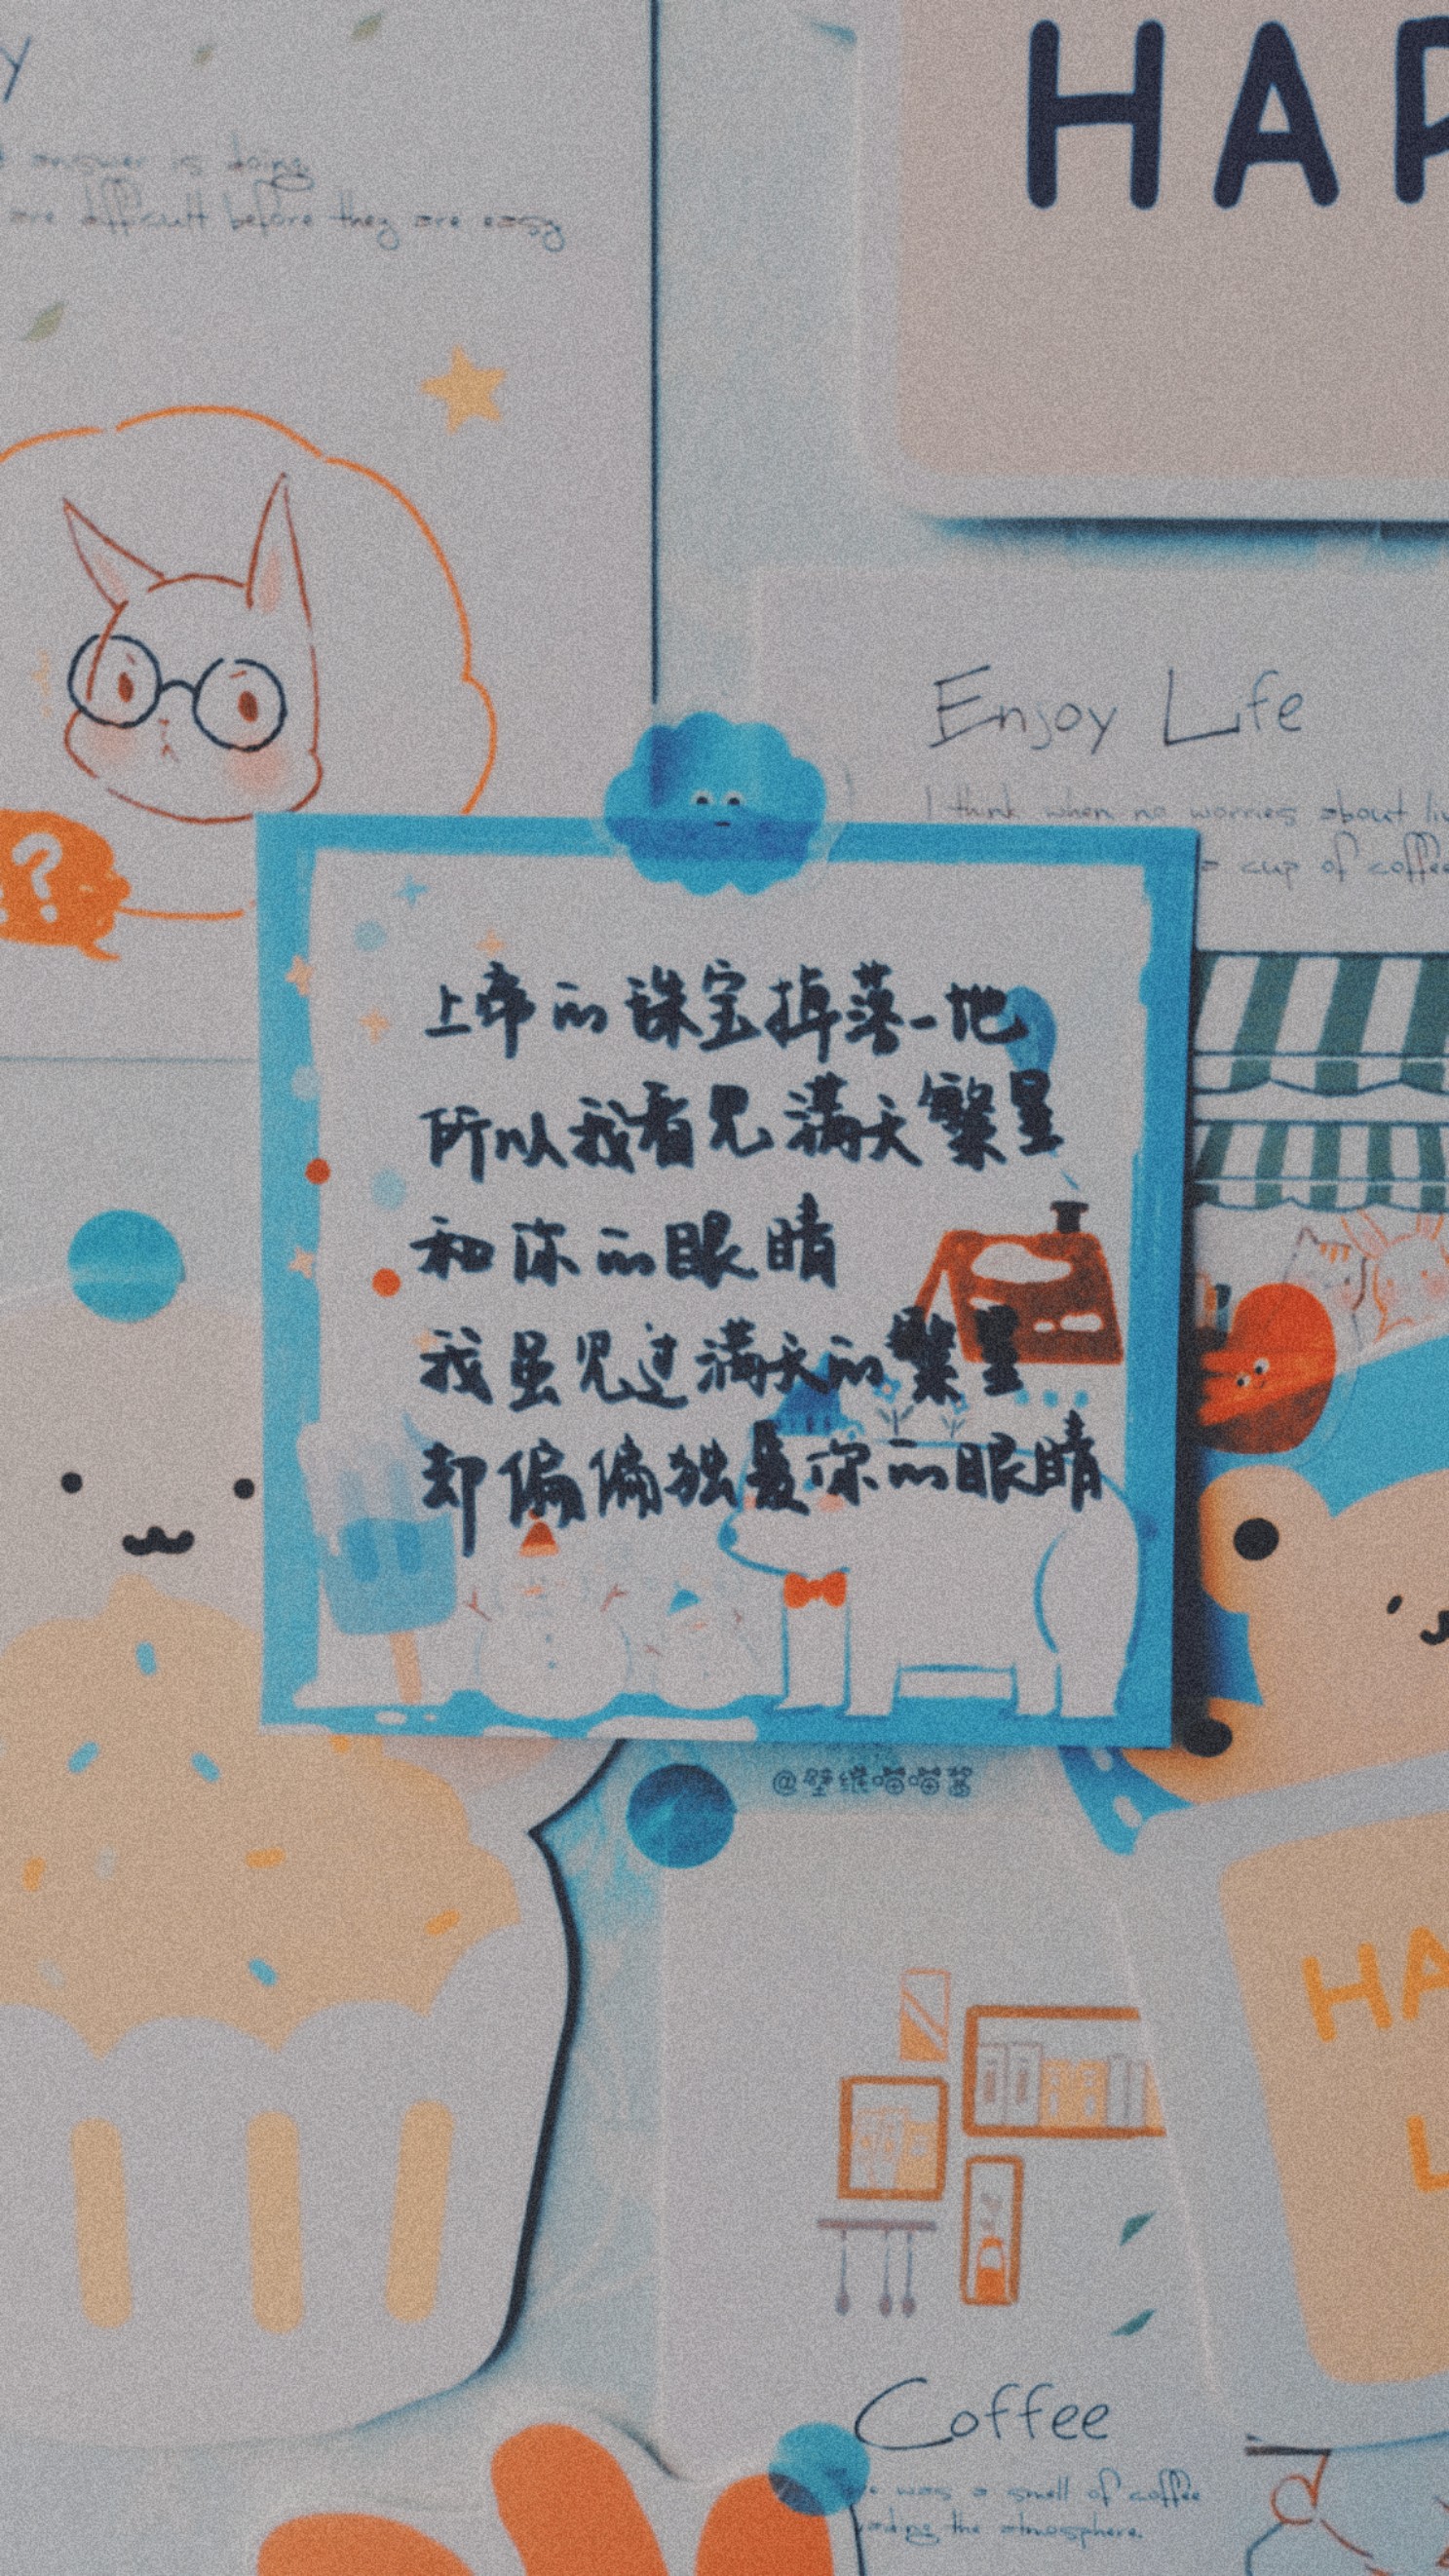 y
answer is doing.
are difficult before they are easy
HAP
Enjoy Life
I think when no worries about
a cup of coffee
??
上帝的珠宝掉落一地
所以我看见满天繁星
和你的眼睛
我虽见过满天的繁星
却偏偏独爱你的眼睛
@壁纸喵喵酱
HA
L
Coffee
was a smell of coffee
the atmosphere.